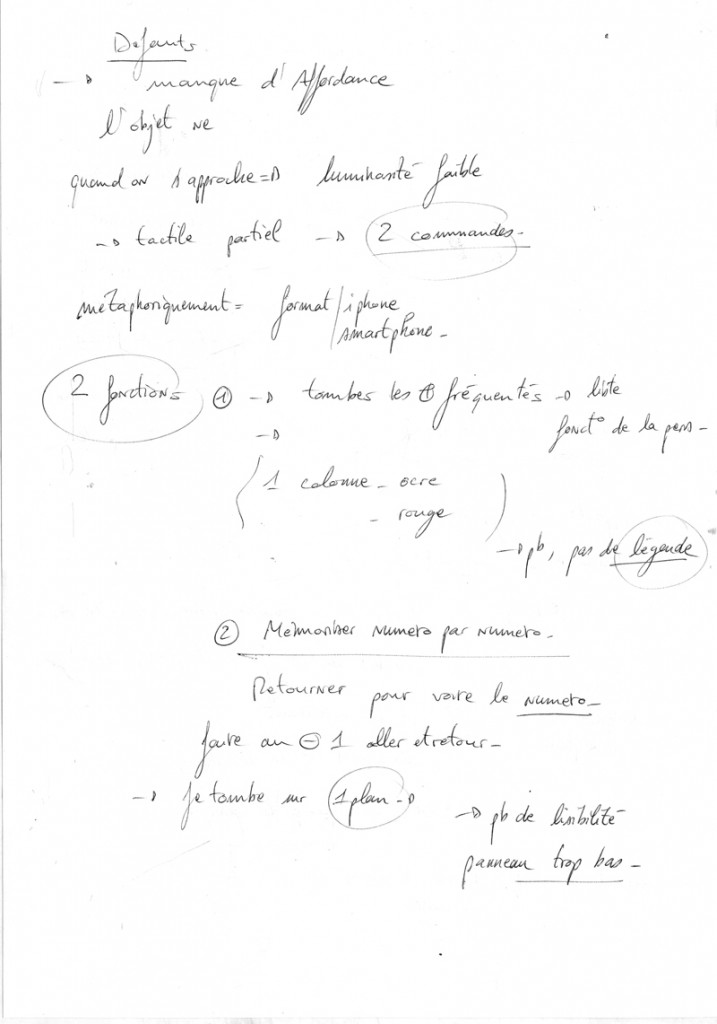 Defauts
→ manque d'Affordance
l'objet ne
quand on s'approche ⇒ luminosité faible
→ tactile partiel → 2 commandes -
métaphoriquement = format / iphone
smartphone -
2 fonctions ① → tombes les ⊕ fréquentés → liste
→ fonct° de la pers -
( 1 colonne - ocre
- rouge )
→ pb, pas de légende
② Mémoriser numero par numero -
Retourner pour voire le numero -
faire au ⊖ 1 aller et retour -
→ Je tombe sur 1 plan →
→ pb de lisibilité
panneau trop bas -